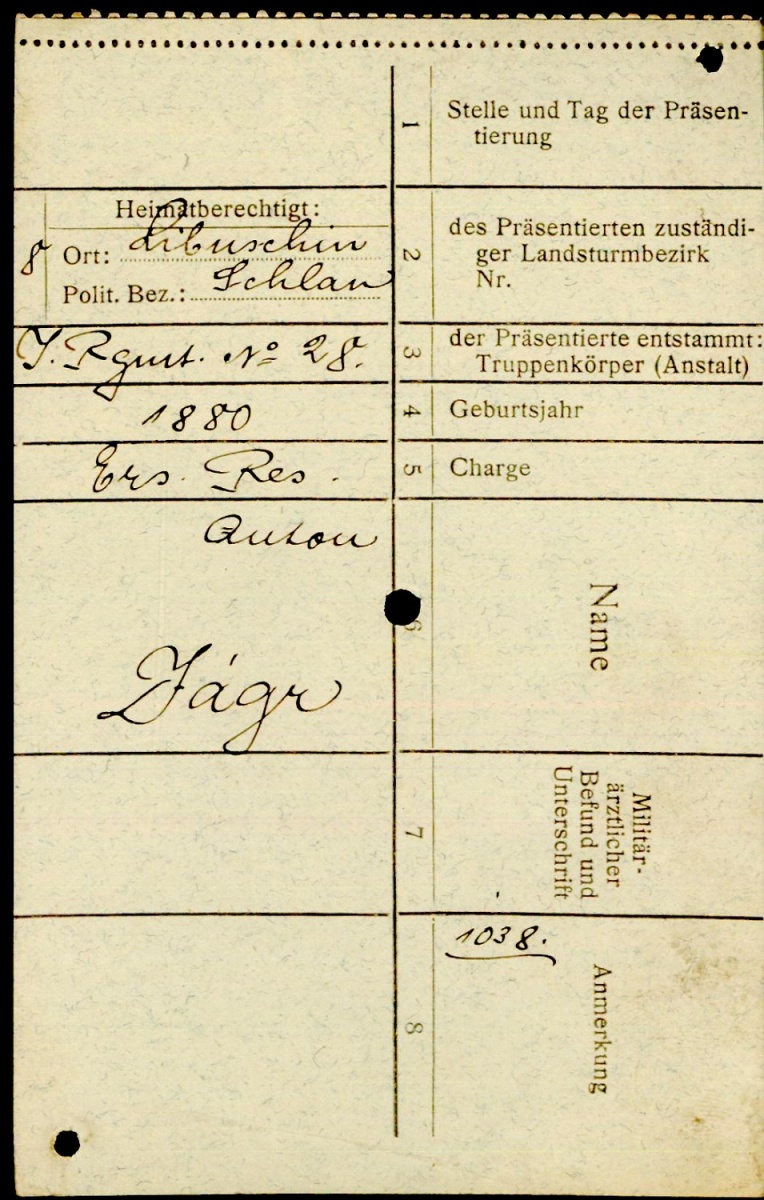 1
Stelle und Tag der Präsen-
tierung
Heimatberechtigt:
8
Ort: Libuschin
Polit. Bez.: Schlan
2
des Präsentierten zuständi-
ger Landsturmbezirk
Nr.
J. Rgmt. No 28.
3
der Präsentierte entstammt:
Truppenkörper (Anstalt)
1880
4
Geburtsjahr
Ers. Res.
5
Charge
Anton
Jágr
6
Name
7
Militär-
ärztlicher
Befund und
Unterschrift
8
1038.
Anmerkung